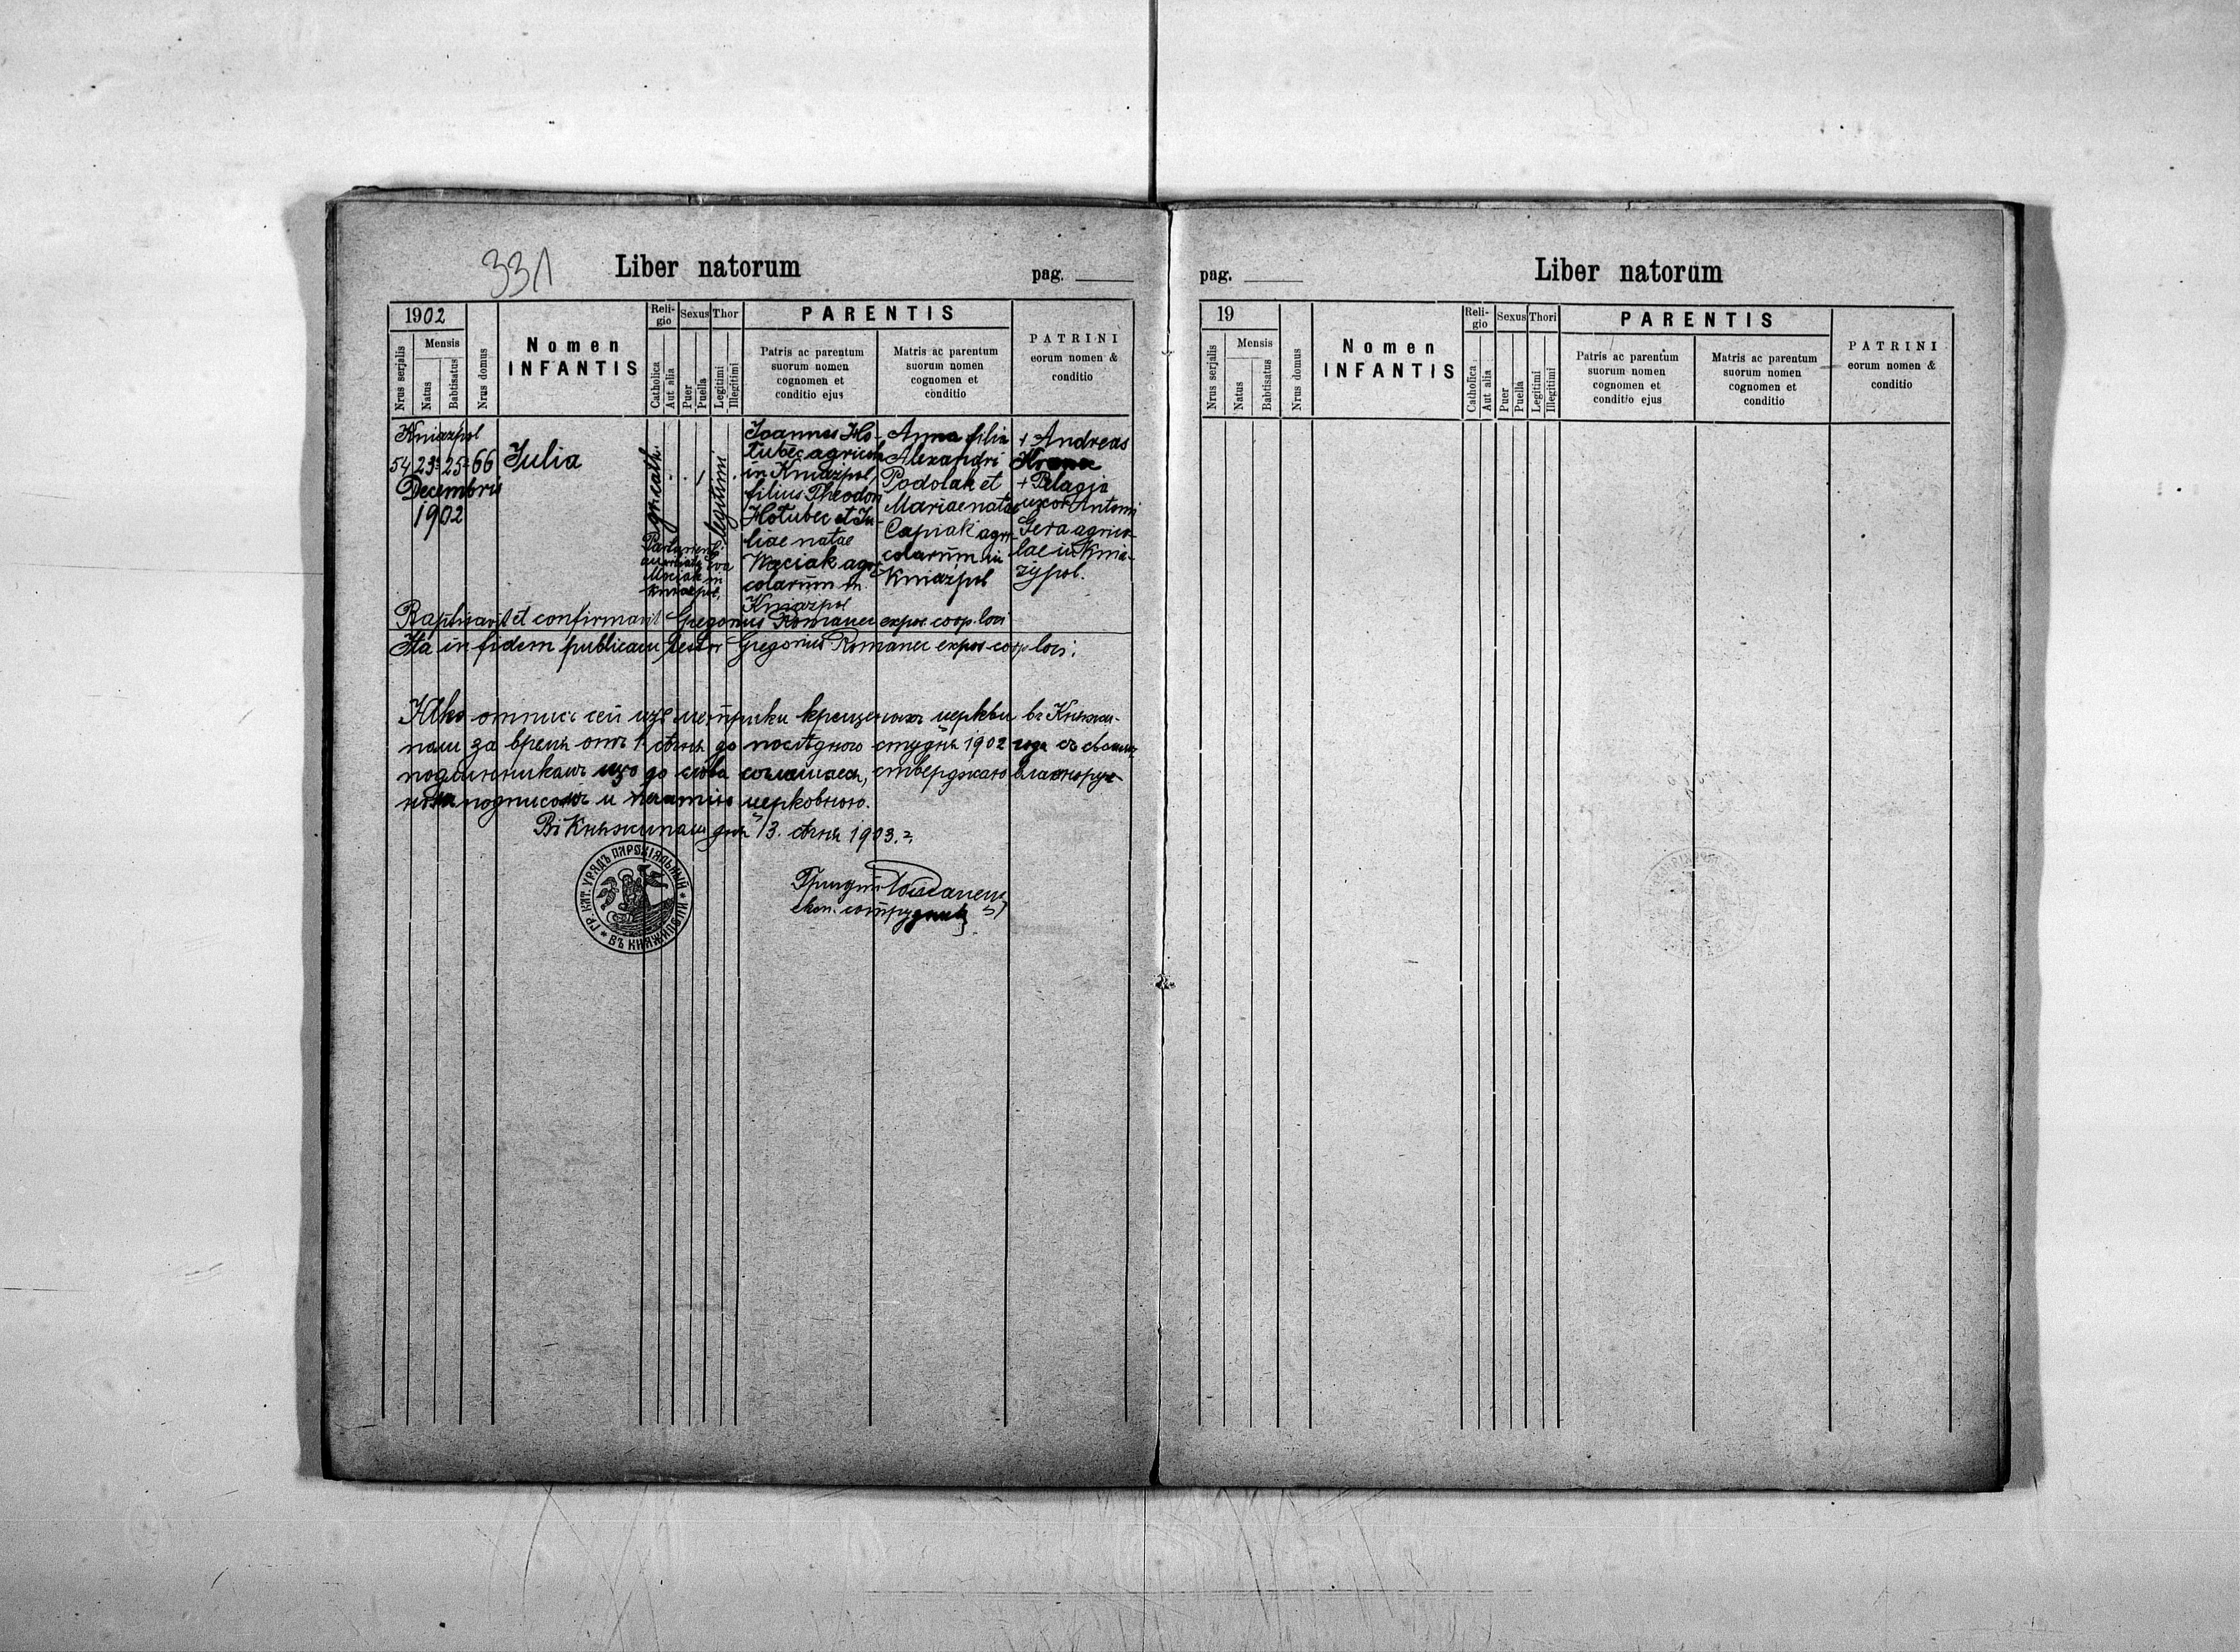 331
Liber natorum
pag.
1902
Nrus serjalis
Mensis
Natus
Babtisatus
Nrus domus
Nomen
INFANTIS
Reli-
gio
Catholica
Aut alia
Sexus
Puer
Puella
Thor
Legitimi
Illegitimi
PARENTIS
Patris ac parentum
suorum nomen
cognomen et
conditio ejus
Matris ac parentum
suorum nomen
cognomen et
conditio
PATRINI
eorum nomen &
conditio
Kniazpol
54 23 25 66
Decembris
1902
Julia
gr. cath.
legitimi
Kniazpol
Joannes Ho-
łubec agricola
in Kniazpol,
filius Theodori
Hołubec et Ju-
liae natae
Maciak agri-
colarum in
Kniazpol
Anna filia
Alexandri
Podolak et
Mariae natae
Capiak agri-
colarum in
Kniazpol
+ Andreas
+ Pelagia
uxor Antoni
Gera agrico-
lae in Knia-
zypol.
Baptisavit et confirmavit Gregorius Romanec expos. coop. loci
Ita in fidem publicam testor Gregorius Romanec expos. coop. loci.
Яко отпись сей изъ метрики крещеныхъ церкви въ Княжи-
поли за время отъ 1 сѣчня до послѣдного студня 1902 года съ своимъ
подлинникомъ до слова соглашаеся, стверджаю власнорус-
подписомъ и печатию церковною.
Въ Княжиполи дня 13. сѣчня 1903.
Григорій Романец
експ. сотрудник
ГР. КАТ. УРЯДЪ ПАРОХІЯЛЬНЫЙ
ВЪ КНЯЖИПОЛИ
pag.
Liber natorum
19
Nrus serjalis
Mensis
Natus
Babtisatus
Nrus domus
Nomen
INFANTIS
Reli-
gio
Catholica
Aut alia
Sexus
Puer
Puella
Thori
Legitimi
Illegitimi
PARENTIS
Patris ac parentum
suorum nomen
cognomen et
conditio ejus
Matris ac parentum
suorum nomen
cognomen et
conditio
PATRINI
eorum nomen &
conditio